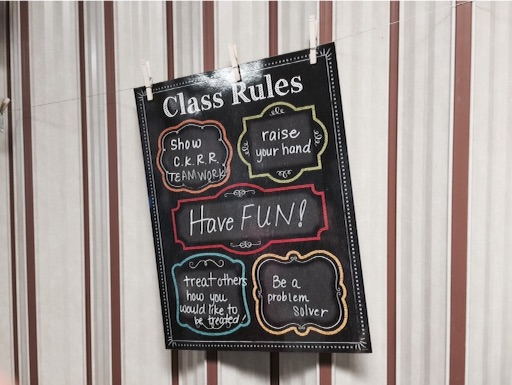 Class Rules
Show
C.K.R.R.
TEAMWORK!
raise
your hand
Have FUN!
treat others
how you
would like to
be treated!
Be a
problem
solver